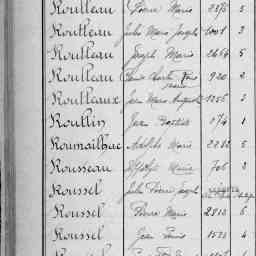 Roulleau Pierre Marie 2376 5
Roulleau Jules Marie Joseph 1001 3
Roulleau Joseph Marie 2464 5
Roulleau 920 2
Roulleaux Jean Marie Auguste 1256 3
Roullin Jean Baptiste 174 1
Roumailhac Adolphe Marie 2282 5
Rousseau Marie 706 2
Roussel Jules Pierre Joseph
Roussel Pierre Marie 2813 6
Roussel Jean 1523 4
Roussel